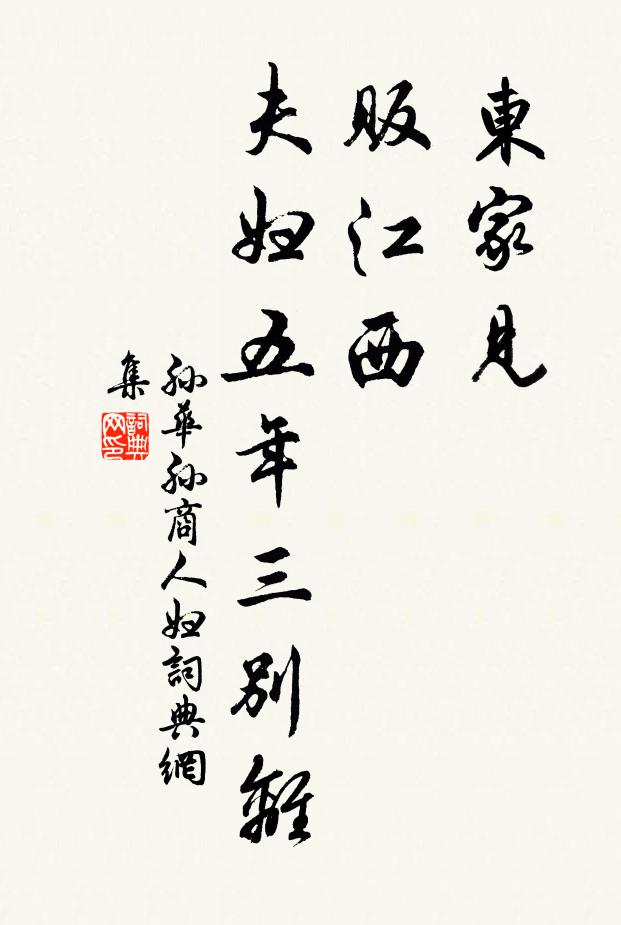 東家見
販江西
夫婦五年三別離
孫華孫商人婦詞典網
集
詞典
网印